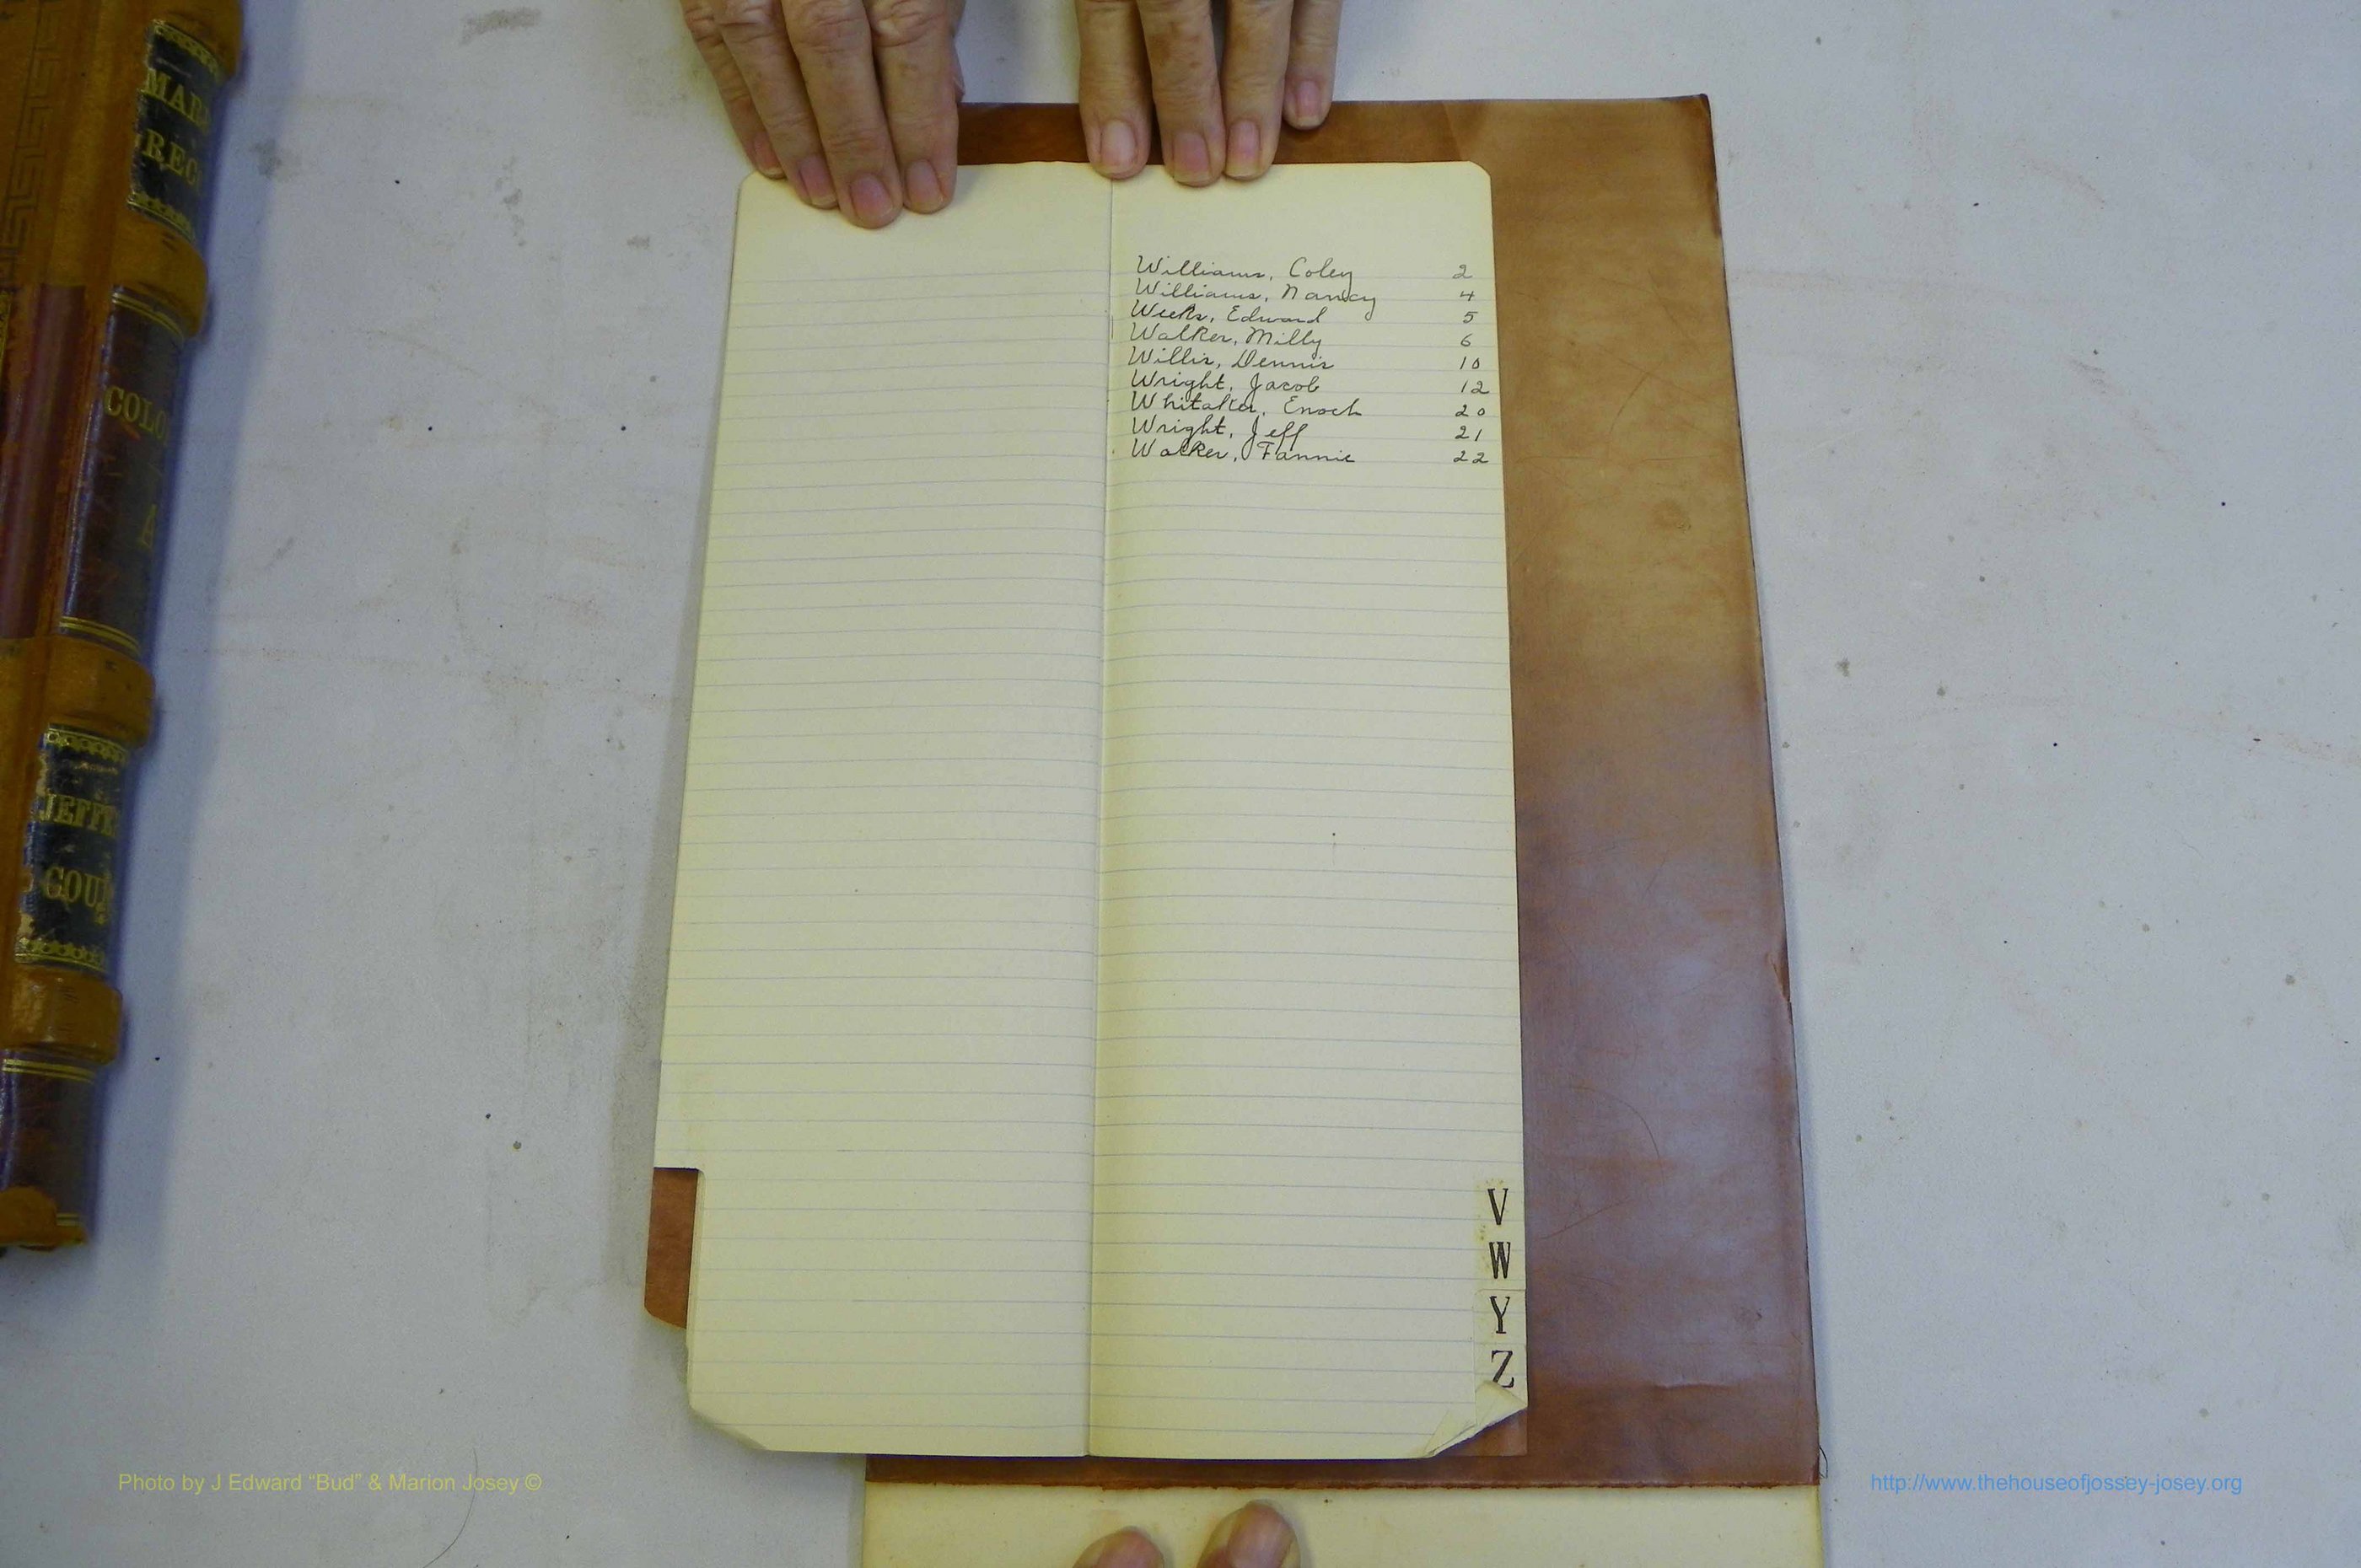 MAR
RECO
COLO
A
JEFFE
COUN
Williams, Coley 2
Williams, Nancy 4
Weeks, Edward 5
Walker, Milly 6
Willis, Dennis 10
Wright, Jacob 12
Whitaker, Enoch 20
Wright, Jeff 21
Walker, Fannie 22
V
W
Y
Z
Photo by J Edward “Bud” & Marion Josey ©
http://www.thehouseofjossey-josey.org